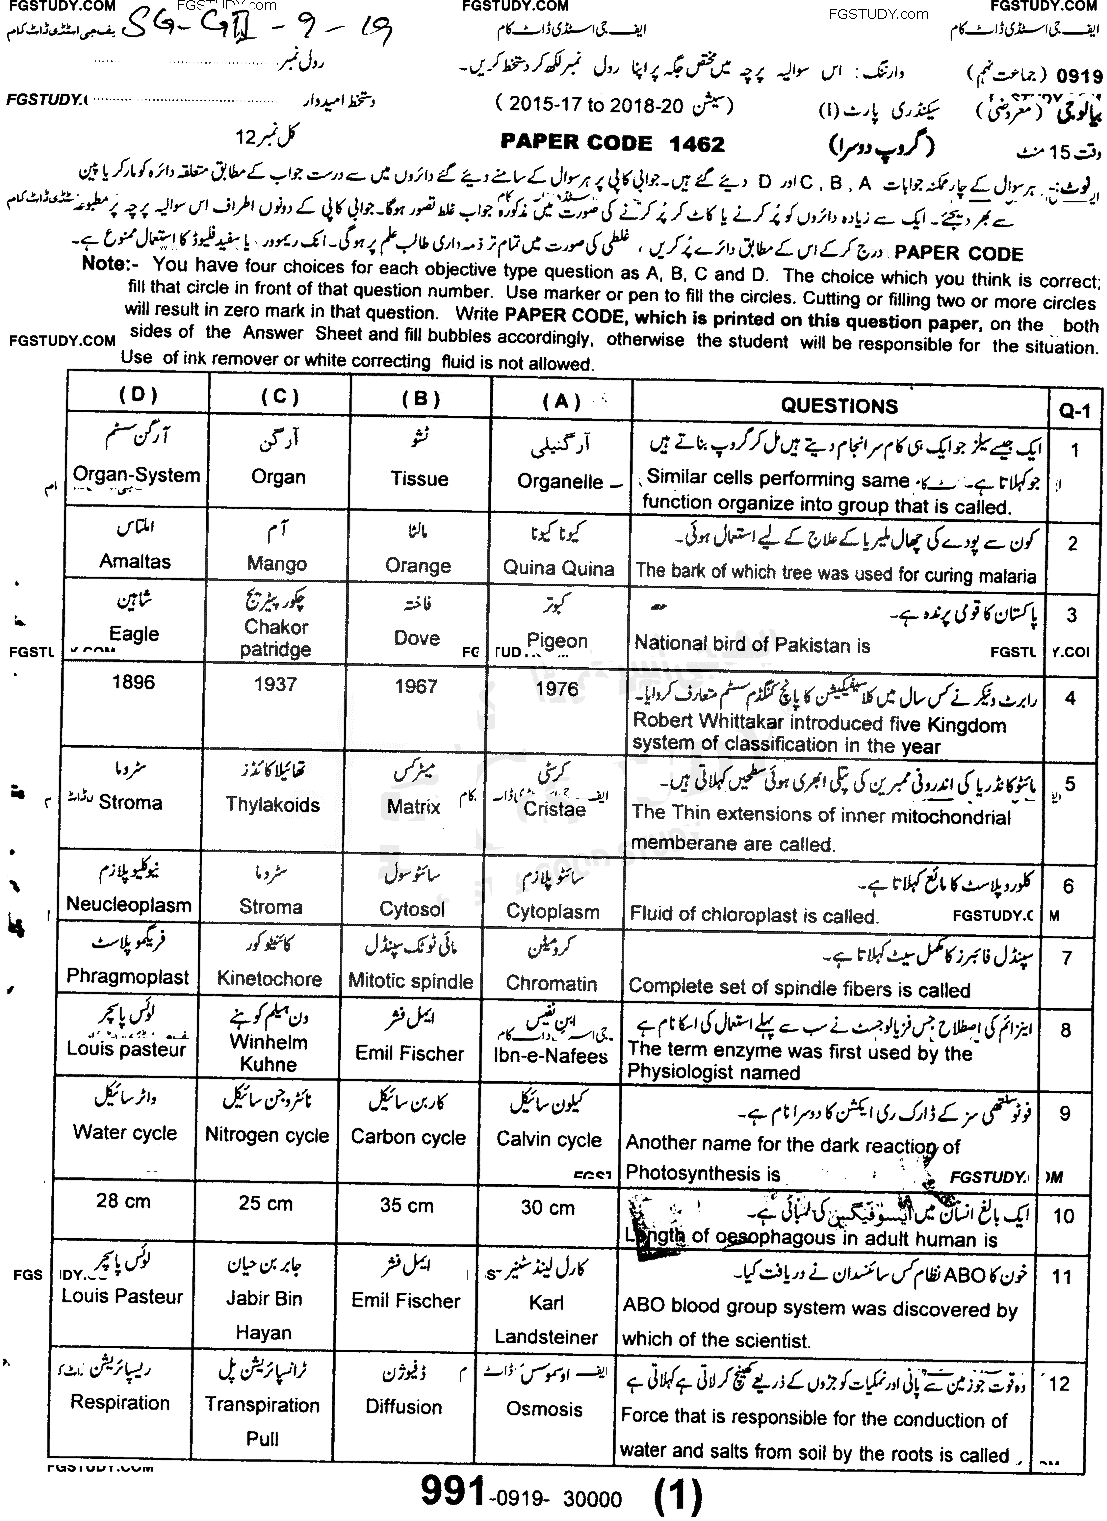 FGSTUDY.COM FGSTUDY.com FGSTUDY.COM FGSTUDY.com FGSTUDY.COM
SG-GII-9-19
ایف جی اسٹڈی ڈاٹ کام ایف جی اسٹڈی ڈاٹ کام
0919 (جماعت نہم) وارننگ: اس سوالیہ پرچہ میں مختص جگہ پر اپنا رول نمبر لکھ کر دستخط کریں۔ رول نمبر
بیالوجی (معروضی) سیکنڈری پارٹ (I) (سیشن 2015-17 to 2018-20) دستخط امیدوار FGSTUDY.C
وقت 15 منٹ (گروپ دوسرا) PAPER CODE 1462 کل نمبر 12
نوٹ:۔ ہر سوال کے چار ممکنہ جوابات A ، B ، C اور D دیئے گئے ہیں۔ جوابی کاپی پر ہر سوال کے سامنے دیئے گئے دائروں میں سے درست جواب کے مطابق متعلقہ دائرہ کو مارکر یا پین
سے بھر دیجئے۔ ایک سے زیادہ دائروں کو پُر کرنے یا کاٹ کر پُر کرنے کی صورت میں مذکورہ جواب غلط تصور ہوگا۔ جوابی کاپی کے دونوں اطراف اس سوالیہ پرچہ پر مطبوعہ
PAPER CODE درج کر کے اس کے مطابق دائرے پُر کریں ، غلطی کی صورت میں تمام تر ذمہ داری طالب علم پر ہوگی۔ انک ریموور یا سفید فلیوڈ کا استعمال ممنوع ہے۔
Note:- You have four choices for each objective type question as A, B, C and D. The choice which you think is correct;
fill that circle in front of that question number. Use marker or pen to fill the circles. Cutting or filling two or more circles
will result in zero mark in that question. Write PAPER CODE, which is printed on this question paper, on the both
FGSTUDY.COM sides of the Answer Sheet and fill bubbles accordingly, otherwise the student will be responsible for the situation.
Use of ink remover or white correcting fluid is not allowed.
(D) (C) (B) (A) QUESTIONS Q-1
آرگن سسٹم آرگن ٹشو آرگنیلی ایک جیسے سیلز جو ایک ہی کام سرانجام دیتے ہیں مل کر گروپ بناتے ہیں 1
جو کہلاتا ہے۔
Organ-System Organ Tissue Organelle Similar cells performing same
function organize into group that is called.
املتاس آم مالٹا کیونا کیونا کون سے پودے کی چھال ملیریا کے علاج کے لیے استعمال ہوئی۔ 2
Amaltas Mango Orange Quina Quina The bark of which tree was used for curing malaria
شاہین چکور پیٹریج فاختہ کبوتر پاکستان کا قومی پرندہ ہے۔ 3
Eagle Chakor patridge Dove Pigeon National bird of Pakistan is
FGSTUDY.COM
1896 1937 1967 1976 رابرٹ وٹیکر نے کس سال میں کلاسیفیکیشن کا پانچ کنگڈم سسٹم متعارف کروایا۔ 4
Robert Whittakar introduced five Kingdom
system of classification in the year
سٹروما تھائیلاکائڈز میٹرکس کرسٹی مائٹوکانڈریا کی اندرونی ممبرین کی پتلی ابھری ہوئی سطحیں کہلاتی ہیں۔ 5
Stroma Thylakoids Matrix Cristae The Thin extensions of inner mitochondrial
memberane are called.
نیوکلیوپلازم سٹروما سائٹوسول سائٹوپلازم کلوروپلاسٹ کا مائع کہلاتا ہے۔ 6
Neucleoplasm Stroma Cytosol Cytoplasm Fluid of chloroplast is called. FGSTUDY.C M
فریگموپلاسٹ کائنٹوکور مائی ٹوٹک سپنڈل کرومیٹن سپنڈل فائبرز کا مکمل سیٹ کہلاتا ہے۔ 7
Phragmoplast Kinetochore Mitotic spindle Chromatin Complete set of spindle fibers is called
لوئس پاسچر ون ہیلم کوہنے ایمل فشر ابن نفیس اینزائم کی اصطلاح جس فزیالوجسٹ نے سب سے پہلے استعمال کی اسکا نام ہے 8
Louis pasteur Winhelm Kuhne Emil Fischer Ibn-e-Nafees The term enzyme was first used by the
Physiologist named
واٹر سائیکل نائٹروجن سائیکل کاربن سائیکل کیلون سائیکل فوٹوسنتھی سز کے ڈارک ری ایکشن کا دوسرا نام ہے۔ 9
Water cycle Nitrogen cycle Carbon cycle Calvin cycle Another name for the dark reaction of
Photosynthesis is FGSTUDY. OM
28 cm 25 cm 35 cm 30 cm ایک بالغ انسان میں ایسوفیگس کی لمبائی ہے۔ 10
Length of oesophagous in adult human is
لوئس پاسچر جابر بن حیان ایمل فشر کارل لینڈ سٹینر خون کا ABO نظام کس سائنسدان نے دریافت کیا۔ 11
Louis Pasteur Jabir Bin Hayan Emil Fischer Karl Landsteiner ABO blood group system was discovered by
which of the scientist.
ریسپائریشن ٹرانسپائریشن پل ڈفیوژن اوسموسس وہ قوت جو زمین سے پانی اور نمکیات کو جڑوں کے ذریعے کھینچ کر لاتی ہے کہلاتی ہے 12
Respiration Transpiration Pull Diffusion Osmosis Force that is responsible for the conduction of
water and salts from soil by the roots is called
FGSTUDY.COM
991-0919- 30000 (1)